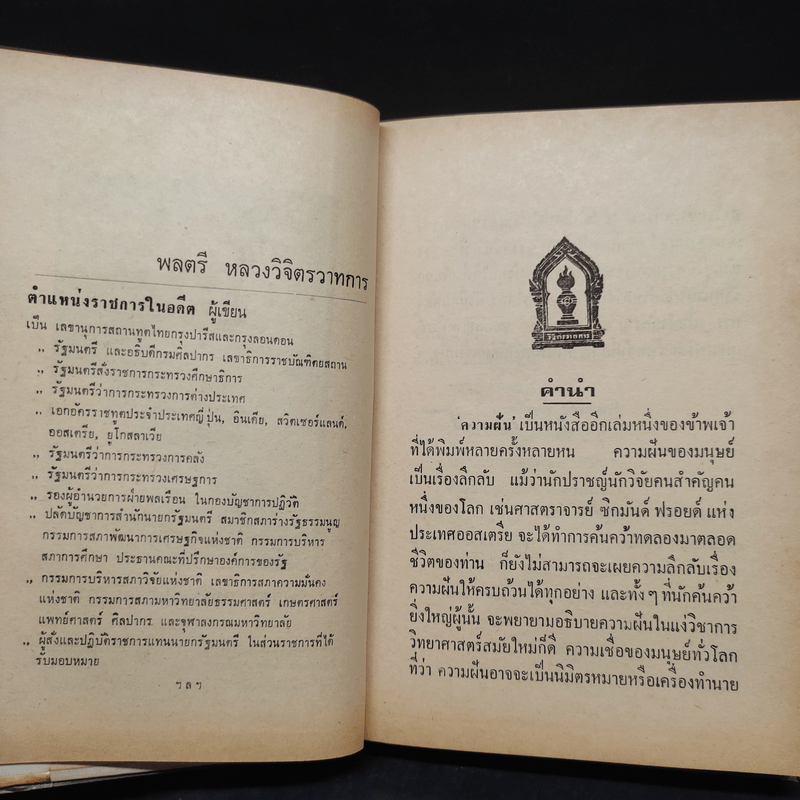 พลตรี หลวงวิจิตรวาทการ
ตำแหน่งราชการในอดีต ผู้เขียน
เป็น เลขานุการสถานทูตไทยกรุงปารีสและกรุงลอนดอน
,, รัฐมนตรี และอธิบดีกรมศิลปากร เลขาธิการราชบัณฑิตยสถาน
,, รัฐมนตรีสั่งราชการกระทรวงศึกษาธิการ
,, รัฐมนตรีว่าการกระทรวงการต่างประเทศ
,, เอกอัครราชทูตประจำประเทศญี่ปุ่น, อินเดีย, สวิตเซอร์แลนด์,
ออสเตรีย, ยูโกสลาเวีย
,, รัฐมนตรีว่าการกระทรวงการคลัง
,, รัฐมนตรีว่าการกระทรวงเศรษฐการ
,, รองผู้อำนวยการฝ่ายพลเรือน ในกองบัญชาการปฏิวัติ
,, ปลัดบัญชาการสำนักนายกรัฐมนตรี สมาชิกสภาร่างรัฐธรรมนูญ
กรรมการสภาพัฒนาการเศรษฐกิจแห่งชาติ กรรมการบริหาร
สภาการศึกษา ประธานคณะที่ปรึกษาองค์การของรัฐ
,, กรรมการบริหารสภาวิจัยแห่งชาติ เลขาธิการสภาความมั่นคง
แห่งชาติ กรรมการสภามหาวิทยาลัยธรรมศาสตร์ เกษตรศาสตร์
แพทย์ศาสตร์ ศิลปากร และจุฬาลงกรณมหาวิทยาลัย
,, ผู้สั่งและปฏิบัติราชการแทนนายกรัฐมนตรี ในส่วนราชการที่ได้
รับมอบหมาย
ฯลฯ
วิจิตรวาทการ
คำนำ
'ความฝัน' เป็นหนังสืออีกเล่มหนึ่งของข้าพเจ้า
ที่ได้พิมพ์หลายครั้งหลายหน ความฝันของมนุษย์
เป็นเรื่องลึกลับ แม้ว่านักปราชญ์นักวิจัยคนสำคัญคน
หนึ่งของโลก เช่นศาสตราจารย์ ซิกมันด์ ฟรอยด์ แห่ง
ประเทศออสเตรีย จะได้ทำการค้นคว้าทดลองมาตลอด
ชีวิตของท่าน ก็ยังไม่สามารถจะเผยความลึกลับเรื่อง
ความฝันให้ครบถ้วนได้ทุกอย่าง และทั้ง ๆ ที่นักค้นคว้า
ยิ่งใหญ่ผู้นั้น จะพยายามอธิบายความฝันในแง่วิชาการ
วิทยาศาสตร์สมัยใหม่ก็ดี ความเชื่อของมนุษย์ทั่วโลก
ที่ว่า ความฝันอาจจะเป็นนิมิตรหมายหรือเครื่องทำนาย